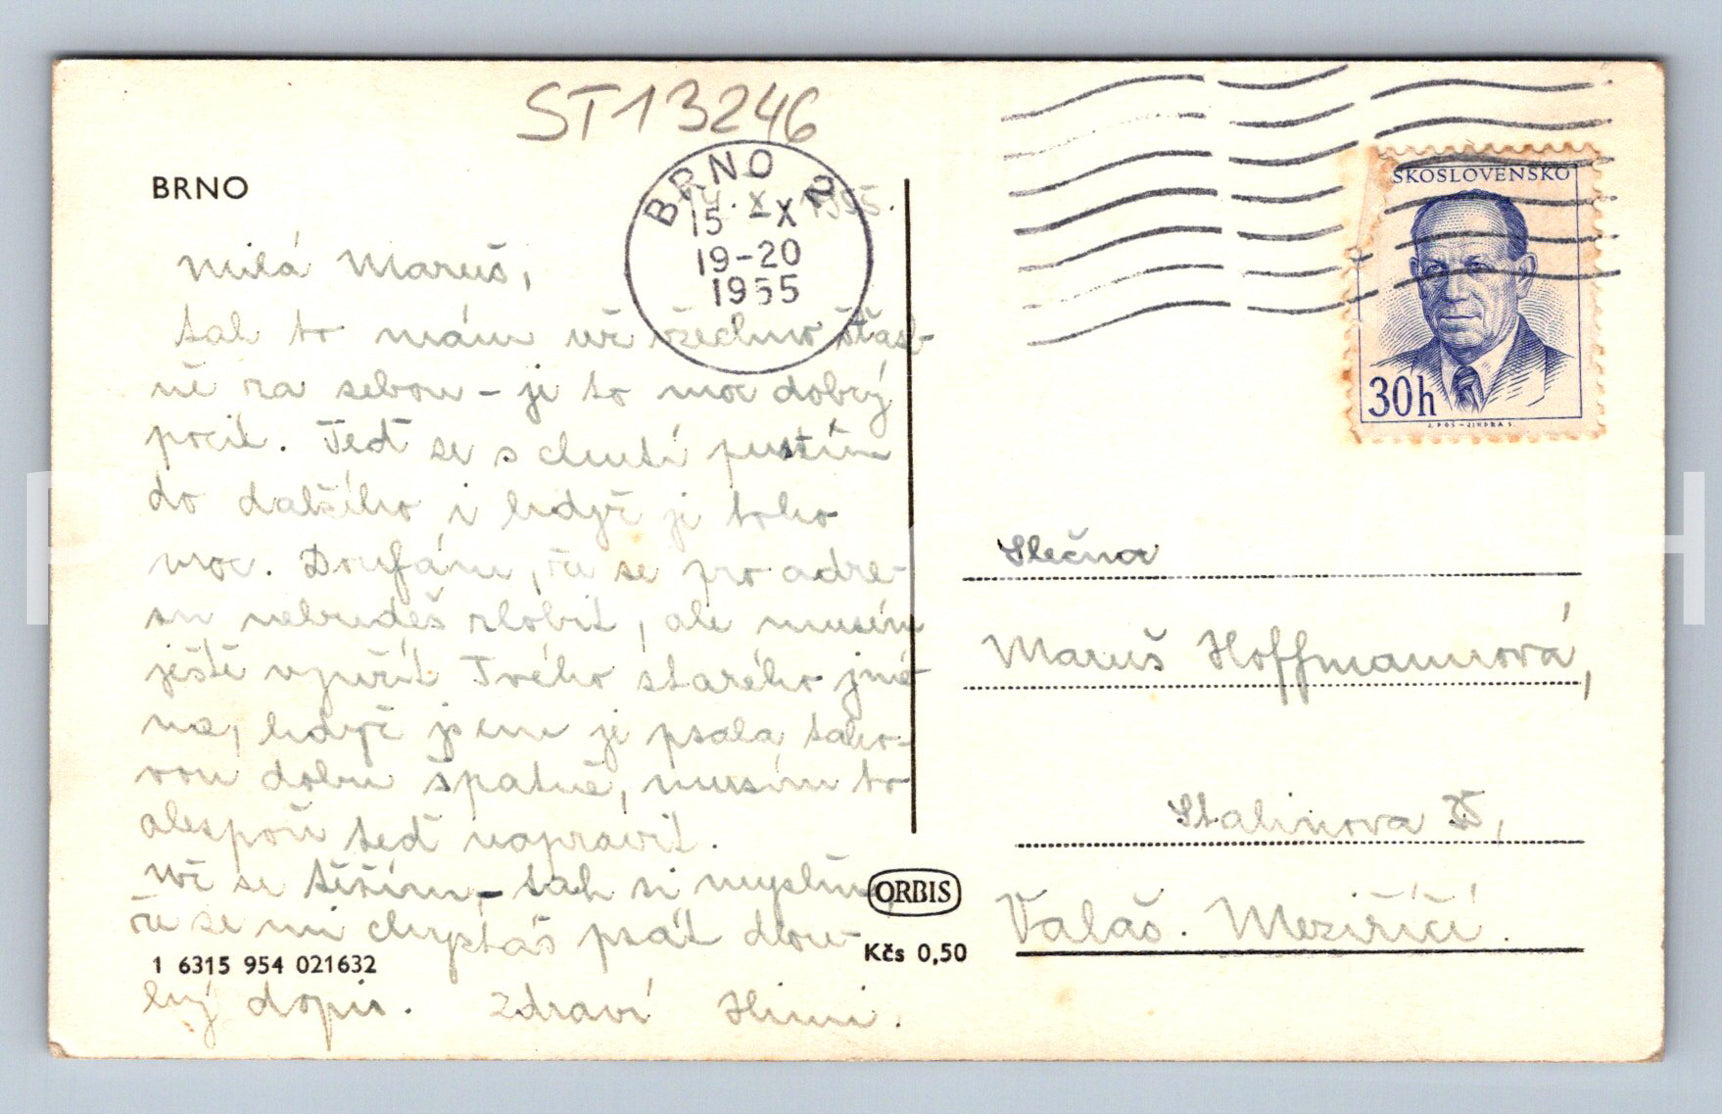 ST13246
BRNO
BRNO 2
15 -X
19-20
1955
14. X. 1955.
Milá Maruš,
tak to mám už všechno šťast-
ně za sebou - je to moc dobrý
pocit. Teď se s chutí pustím
do dalšího i když je toho
moc. Doufám, že se pro adre-
su nebudeš zlobit, ale musím
ještě využít Tvého starého jmé-
na, když jsem je psala tako-
vou dobu špatně, musím to
alespoň teď napravit.
Už se těším, - tak si myslím,
že se mi chystáš psát dlou-
hý dopis. Zdraví
1 6315 954 021632
ORBIS
Kčs 0,50
SKOSLOVENSKO
30h
J. POŠ - JINDRA S.
Slečna
Maruš Hoffmannová,
Stalinova 35,
Valaš. Meziříčí.